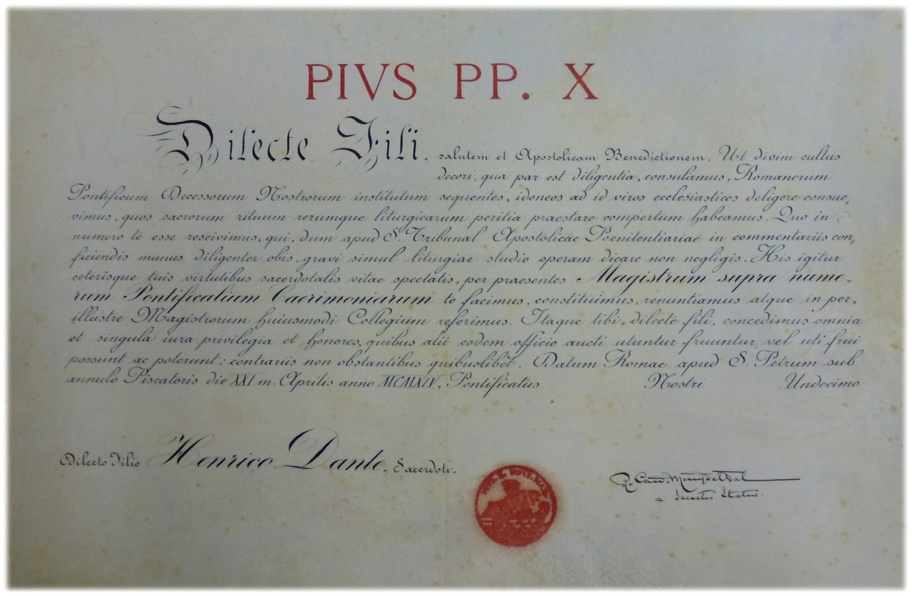 PIVS PP. X
Dilecte Fili, salutem et Apostolicam Benedictionem. Ut divini cultus
decori, qua par est diligentia, consulamus, Romanorum
Pontificum Decessorum Nostrorum institutum sequentes, idoneos ad id viros ecclesiasticos deligere consue,
vimus, quos sacrorum rituum rerumque liturgicarum peritia praestare compertum habeamus. Quo in
numero te esse rescivimus, qui, dum apud S. Tribunal Apostolicae Poenitentiariae in commentariis con,
ficiendis munus diligenter obis, gravi simul liturgiae studio operam dicare non negligis. His igitur
ceterisque tuis virtutibus sacerdotalis vitae spectatis, per praesentes Magistrum supra nume,
rum Pontificalium Caerimoniarum te facimus, constituimus, renuntiamus atque in per,
illustre Magistrorum huiusmodi Collegium referimus. Itaque tibi, dilecte fili, concedimus omnia
et singula iura privilegia et honores, quibus alii eodem officio aucti utuntur fruuntur, vel uti frui
possunt ac poterunt: contrariis non obstantibus quibuslibet. Datum Romae apud S. Petrum sub
annulo Piscatoris die XXI m. Aprilis anno MCMXIV, Pontificatus Nostri Undecimo
Dilecto Filio Henrico Dante, Sacerdoti.
R. Card. Merry del Val
a Secretis Status.